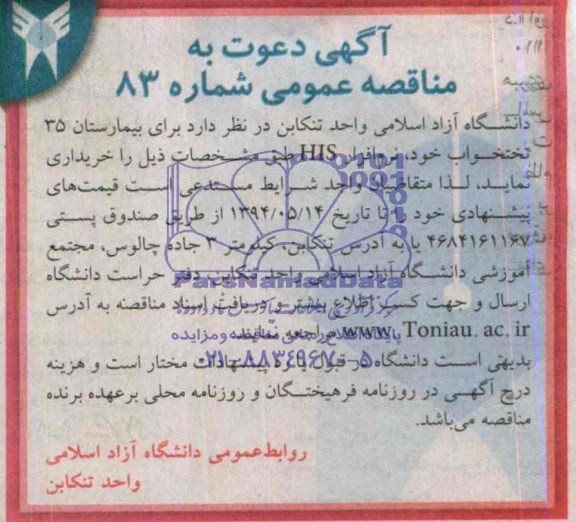 آگهی دعوت به
مناقصه عمومی شماره ۸۳
دانشگاه آزاد اسلامی واحد تنکابن در نظر دارد برای بیمارستان ۳۵
تختخواب خود، نرم‌افزار HIS طبق مشخصات ذیل را خریداری
نماید، لذا متقاضیان واجد شرایط مستدعی است قیمت‌های
پیشنهادی خود را تا تاریخ ۱۳۹۴/۰۵/۱۴ از طریق صندوق پستی
۴۶۸۴۱۶۱۱۶۷ یا به آدرس تنکابن، کیلومتر ۳ جاده چالوس، مجتمع
آموزشی دانشگاه آزاد اسلامی واحد تنکابن دفتر حراست دانشگاه
ParsNamadData
ارسال و جهت کسب اطلاع بیشتر و دریافت اسناد مناقصه به آدرس
www.Toniau.ac.ir مراجعه نمایند.
پایگاه اطلاع رسانی مناقصه و مزایده
بدیهی است دانشگاه در قبول یا رد پیشنهادات مختار است و هزینه
۰۲۱-۸۸۳۴۹۶۷۰-۵
درج آگهی در روزنامه فرهیختگان و روزنامه محلی برعهده برنده
مناقصه می‌باشد.
روابط‌عمومی دانشگاه آزاد اسلامی
واحد تنکابن